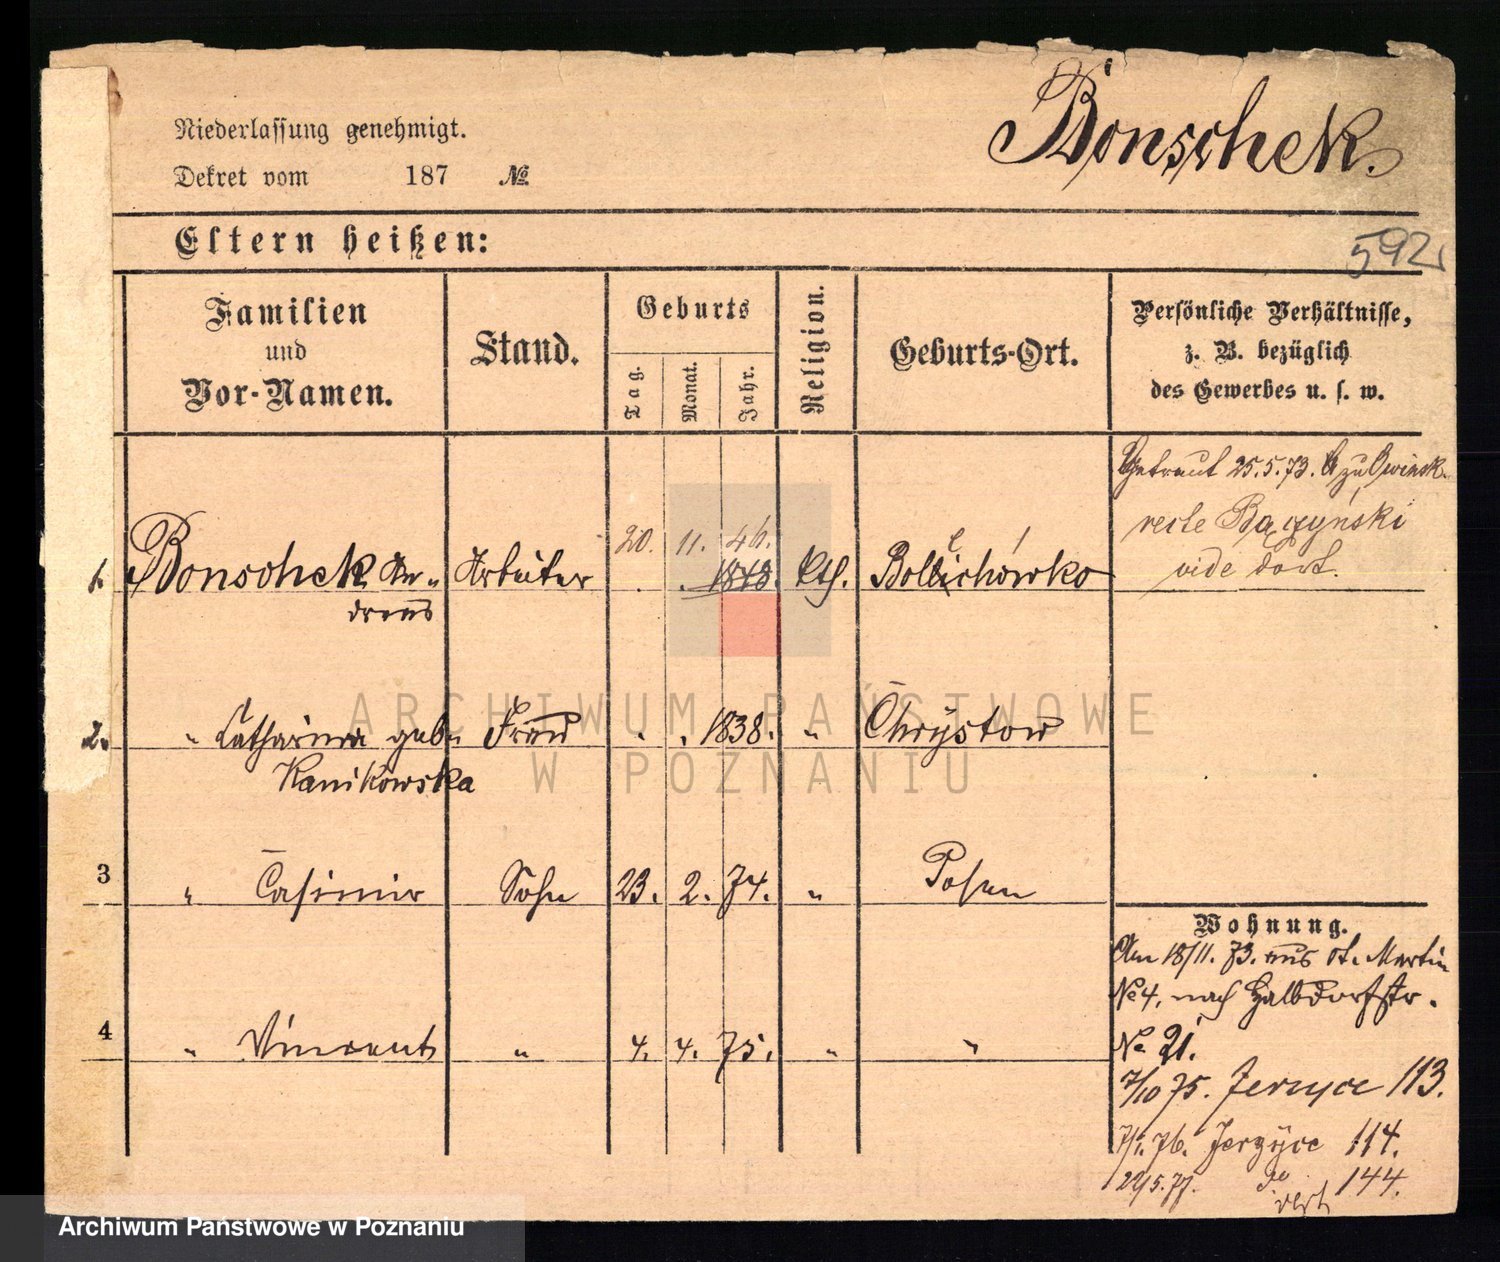 Bonschek.
Niederlassung genehmigt.
Dekret vom 187 №
Eltern heißen:
592
Familien
und
Vor-Namen.
Stand.
Geburts
Tag.
Monat.
Jahr.
Religion.
Geburts-Ort.
Persönliche Verhältnisse,
z. B. bezüglich
des Gewerbes u. s. w.
Getraut 25.5.73. zu Owinsk
recte Bączyński
vide dort.
20. 11. 46.
1. Bonschek An- Arbeiter 1848. Kth.
dreas
2. " Catharina geb. Frau 1838. " Chrystow
Kanikowska
3 " Casimir Sohn 23. 2. 74. " Posen
4 " Vincent " 4. 4. 75. " "
Wohnung.
Am 18/11. 73. aus St. Martin
No 4, nach Halbdorfstr.
No 21.
7/10 75. Jerzyce 113.
7/1. 76. Jerzyce 114.
29/5. 77. do 144.
ARCHIWUM PAŃSTWOWE
W POZNANIU
Archiwum Państwowe w Poznaniu